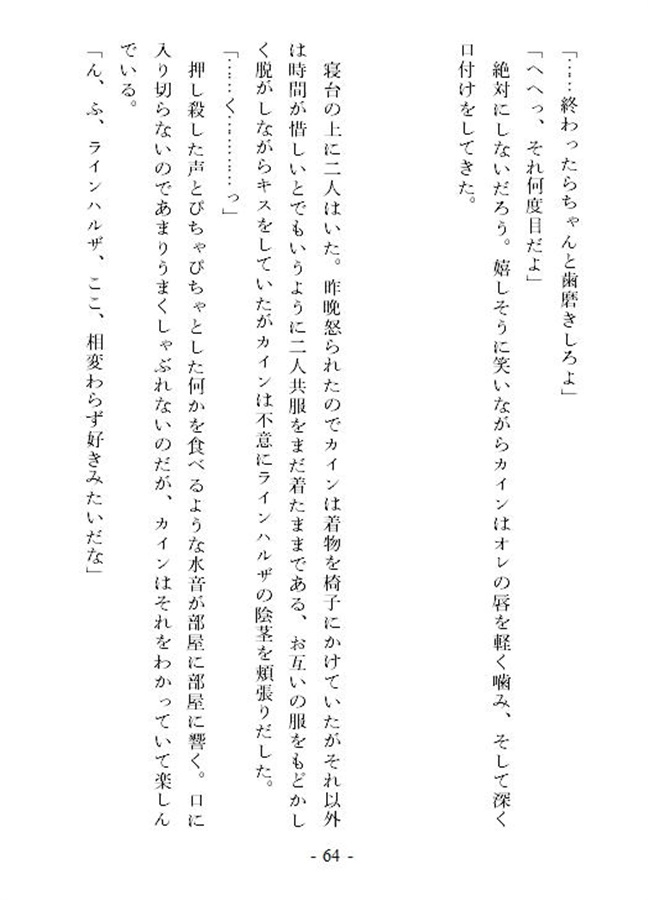 「‥‥終わったらちゃんと歯磨きしろよ」
「へへっ、それ何度目だよ」
　絶対にしないだろう。嬉しそうに笑いながらカインはオレの唇を軽く噛み、そして深く
口付けをしてきた。
　寝台の上に二人はいた。昨晩怒られたのでカインは着物を椅子にかけていたがそれ以外
は時間が惜しいとでもいうように二人共服をまだ着たままである、お互いの服をもどかし
く脱がしながらキスをしていたがカインは不意にラインハルザの陰茎を頬張りだした。
「‥‥く‥‥‥‥っ」
　押し殺した声とぴちゃぴちゃとした何かを食べるような水音が部屋に部屋に響く。口に
入り切らないのであまりうまくしゃぶれないのだが、カインはそれをわかっていて楽しん
でいる。
「ん、ふ、ラインハルザ、ここ、相変わらず好きみたいだな」
- 64 -